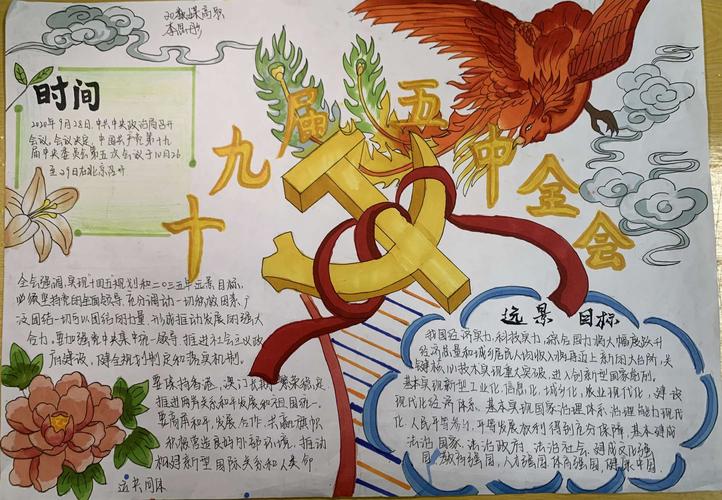 李
时间
2020年9月28日,中共中央政治局召开
会议。会议决定,中国共产党第十九
届中央委员会第五次会议于10月26
至29日在北京召开
十九届五中全会
全会强调,实现十四五规划和二〇三五年远景目标,
必须坚持党的全面领导,充分调动一切积极因素,广
泛团结一切可以团结的力量,形成推动发展的强大
合力。要加强党中央集中统一领导,推进社会主义政
治建设,健全规划制定和落实机制。
要保持香港、澳门长期繁荣稳定,
推进两岸关系和平发展和祖国统一。
要高举和平、发展、合作、共赢旗帜
积极营造良好外部环境,推动
构建新型国际关系和人类命
运共同体
远景目标
我国经济实力、科技实力、综合国力将大幅度跃升
经济总量和城乡居民人均收入将再迈上新的大台阶,关
键核心技术实现重大突破,进入创新型国家前列。
基本实现新型工业化、信息化、城镇化、农业现代化,建设
现代化经济体系。基本实现国家治理体系、治理能力现代
化,人民平等参与、平等发展权利得到充分保障,基本建成
法治国家、法治政府、法治社会,建成文化强
国、教育强国、人才强国、体育强国、健康中国。